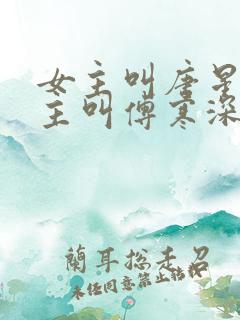 女主叫唐星
主叫傅寒深
蘭耳總末召
未经同意禁止转载